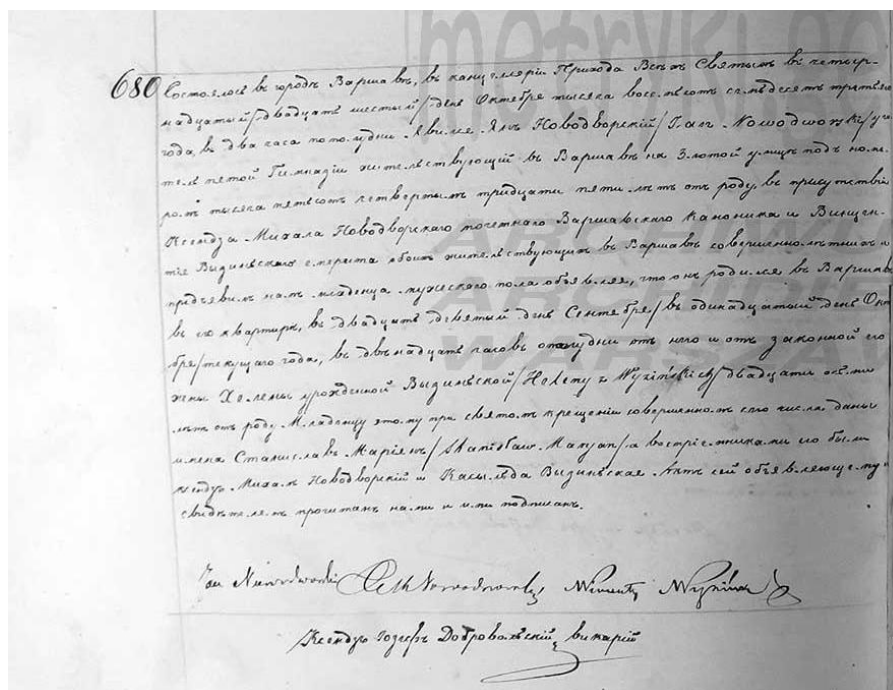 metryki.ge
680 Состоялось въ городѣ Варшавѣ, въ канцелляріи Прихода Всѣхъ Святыхъ въ четыр-
надцатый/двадцать шестый/день Октября тысяча восемьсотъ семьдесятъ третьяго
года, въ два часа пополудни. Явился Янъ Новодворскій/Jan Nowodworski/учи
тель пятой Гимназіи жительствующій въ Варшавѣ на Злотой улицѣ подъ номе-
ромъ тысяча пятьсотъ четвертымъ тридцати пяти лѣтъ отъ роду, въ присутствіи
Ксендза Михала Новодворскаго почетнаго Варшавскаго Каноника и Винцен-
тія Выдзиньскаго емерита обоихъ жительствующихъ въ Варшавѣ совершеннолѣтнихъ и
предъявилъ намъ младенца мужескаго пола объявляя, что онъ родился въ Варшавѣ
въ его квартирѣ, въ двадцать девятый день Сентября/въ одинадцатый день Октя
бря/текущаго года, въ двѣнадцать часовъ отъ него и отъ законной его
жены Хелены урожденной Выдзиньской/Heleny z Wyzińskich/двадцати осьми
лѣтъ отъ роду. Младенцу этому при святомъ крещеніи совершенномъ сего числа даны
имена Станиславъ Маріянъ/Stanisław Maryan/а воспріемниками его были
ксендзъ Михалъ Новодворскій и Касыльда Выдзиньская. Актъ сей объявляющему и
свидѣтелямъ прочитанъ нами и ими подписанъ.
ARCHIWUM
ARCHIDIE
WARSZAW
Jan Nowodworski Nowodworski Wincenty Wyziński
Ксендзъ Іозефъ Добровольскій викарій